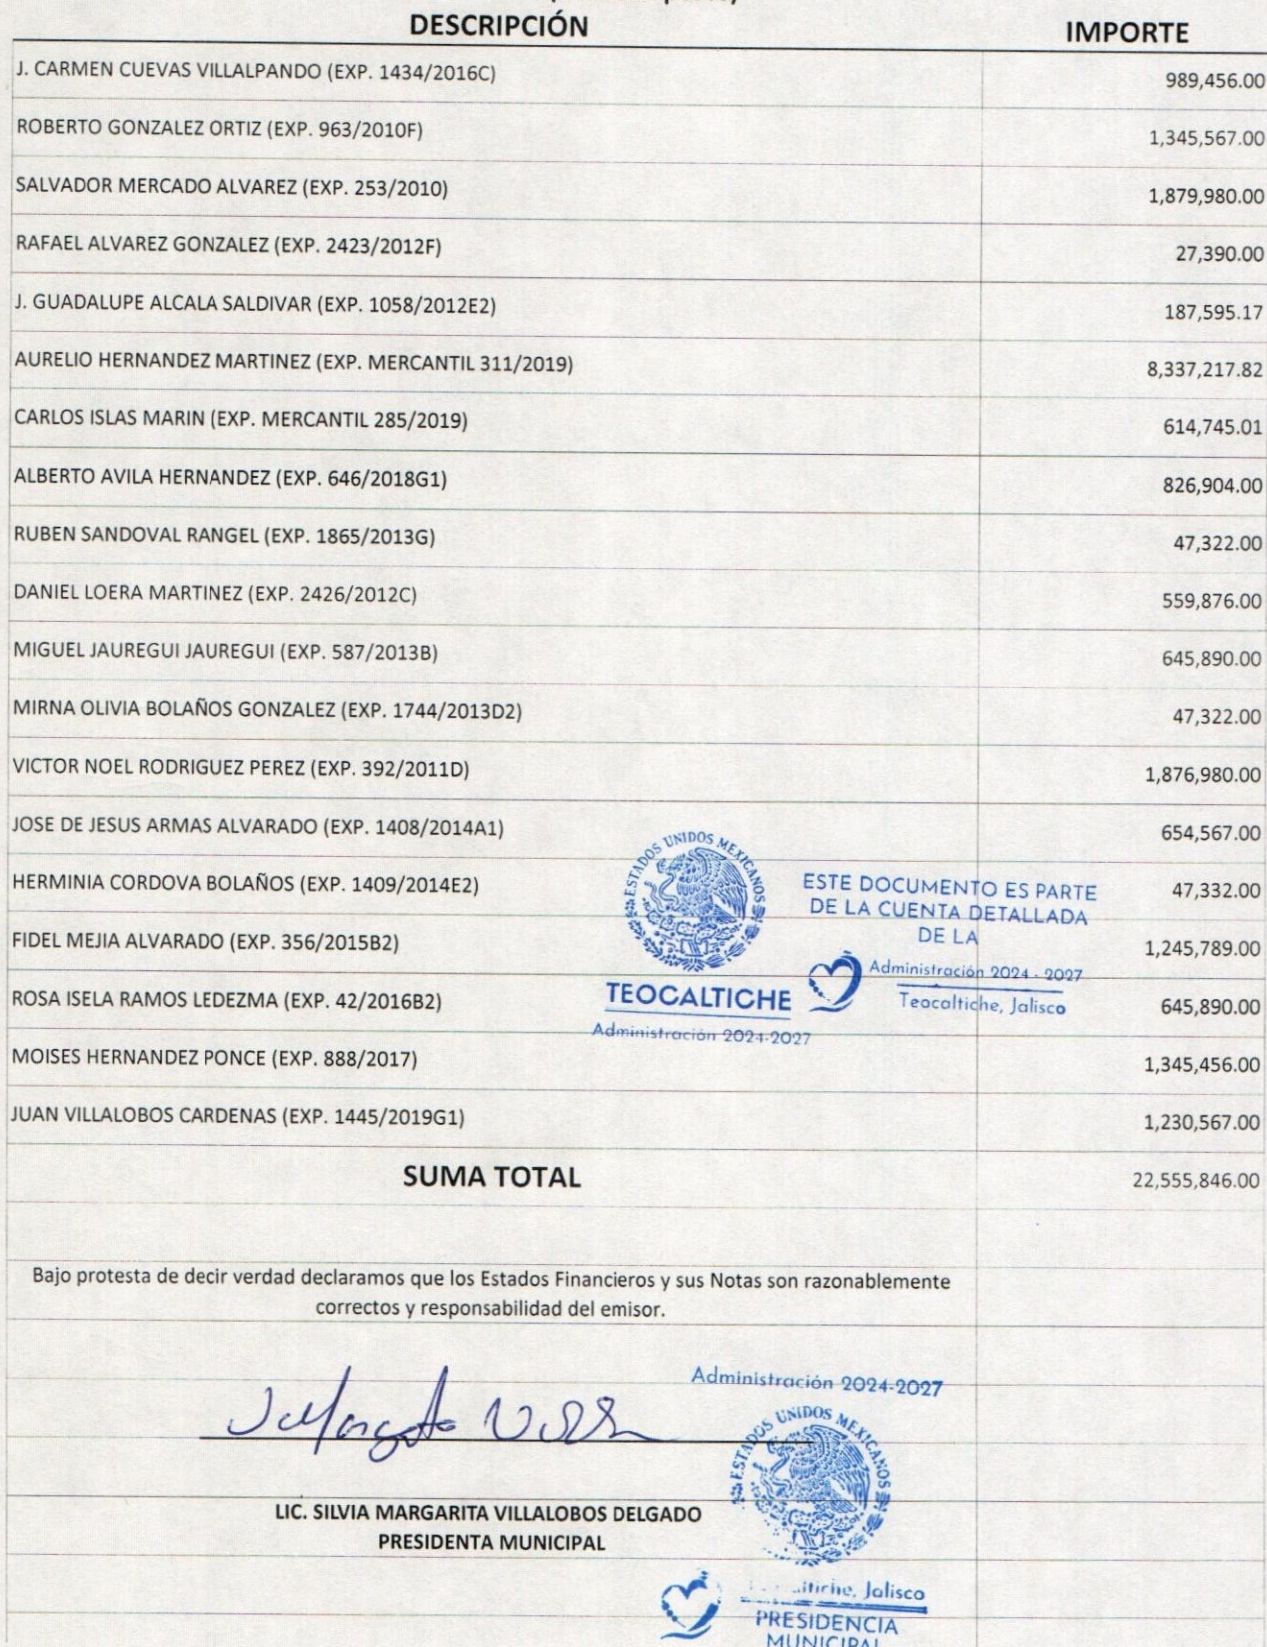 DESCRIPCIÓN IMPORTE
J. CARMEN CUEVAS VILLALPANDO (EXP. 1434/2016C) 989,456.00
ROBERTO GONZALEZ ORTIZ (EXP. 963/2010F) 1,345,567.00
SALVADOR MERCADO ALVAREZ (EXP. 253/2010) 1,879,980.00
RAFAEL ALVAREZ GONZALEZ (EXP. 2423/2012F) 27,390.00
J. GUADALUPE ALCALA SALDIVAR (EXP. 1058/2012E2) 187,595.17
AURELIO HERNANDEZ MARTINEZ (EXP. MERCANTIL 311/2019) 8,337,217.82
CARLOS ISLAS MARIN (EXP. MERCANTIL 285/2019) 614,745.01
ALBERTO AVILA HERNANDEZ (EXP. 646/2018G1) 826,904.00
RUBEN SANDOVAL RANGEL (EXP. 1865/2013G) 47,322.00
DANIEL LOERA MARTINEZ (EXP. 2426/2012C) 559,876.00
MIGUEL JAUREGUI JAUREGUI (EXP. 587/2013B) 645,890.00
MIRNA OLIVIA BOLAÑOS GONZALEZ (EXP. 1744/2013D2) 47,322.00
VICTOR NOEL RODRIGUEZ PEREZ (EXP. 392/2011D) 1,876,980.00
JOSE DE JESUS ARMAS ALVARADO (EXP. 1408/2014A1) 654,567.00
HERMINIA CORDOVA BOLAÑOS (EXP. 1409/2014E2) 47,332.00
FIDEL MEJIA ALVARADO (EXP. 356/2015B2) 1,245,789.00
ROSA ISELA RAMOS LEDEZMA (EXP. 42/2016B2) 645,890.00
MOISES HERNANDEZ PONCE (EXP. 888/2017) 1,345,456.00
JUAN VILLALOBOS CARDENAS (EXP. 1445/2019G1) 1,230,567.00
SUMA TOTAL 22,555,846.00
ESTADOS UNIDOS MEXICANOS
TEOCALTICHE
Administración 2024-2027
ESTE DOCUMENTO ES PARTE
DE LA CUENTA DETALLADA
DE LA
Administración 2024 - 2027
Teocaltiche, Jalisco
Bajo protesta de decir verdad declaramos que los Estados Financieros y sus Notas son razonablemente
correctos y responsabilidad del emisor.
Administración 2024-2027
ESTADOS UNIDOS MEXICANOS
LIC. SILVIA MARGARITA VILLALOBOS DELGADO
PRESIDENTA MUNICIPAL
Jalisco
PRESIDENCIA
MUNICIPAL